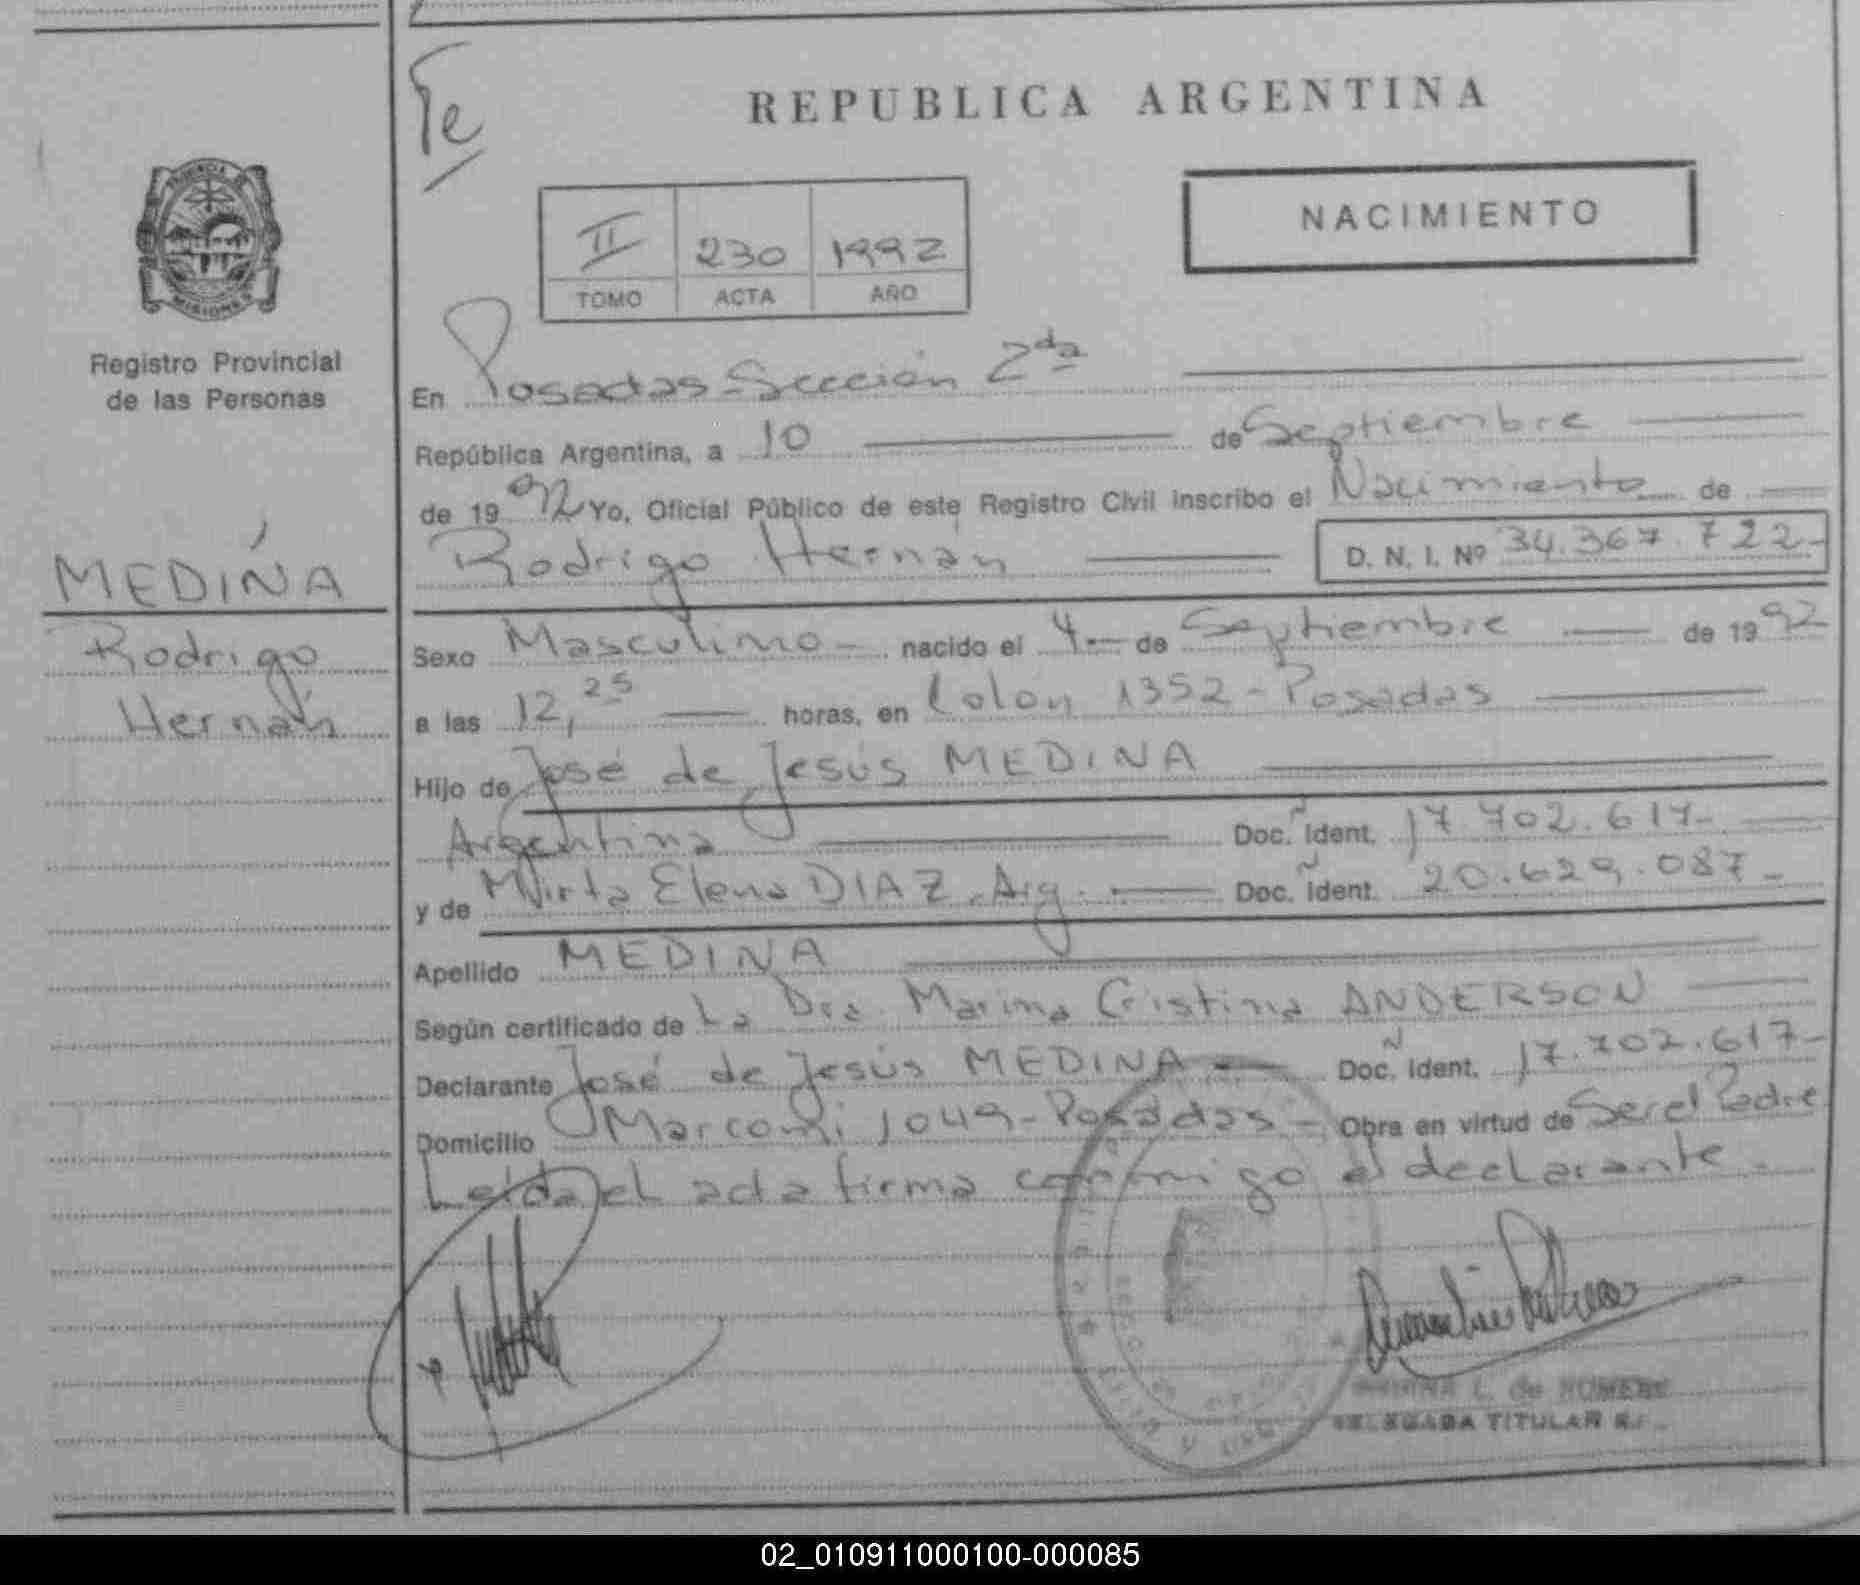 Te
REPUBLICA ARGENTINA
NACIMIENTO
II 230 1992
TOMO ACTA AÑO
MISIONES
Registro Provincial
de las Personas
MEDINA
Rodrigo
Hernán
En Posadas-Sección 2da
República Argentina, a 10 de Septiembre
de 1992 Yo, Oficial Público de este Registro Civil inscribo el Nacimiento de
Rodrigo Hernán D. N. I. Nº 34.367.722-
Sexo Masculino - nacido el 4 - de Septiembre de 1992
a las 12,25 horas, en Colon 1352 - Posadas
Hijo de José de Jesús MEDINA
Argentina Doc. Ident. 17.702.617-
y de Mirta Elena DIAZ. Arg. Doc. Ident. 20.629.087-
Apellido MEDINA
Según certificado de La Dra. Marina Cristina ANDERSON
Declarante José de Jesús MEDINA - Doc. Ident. 17.702.617-
Domicilio Marconi 1049-Posadas - Obra en virtud de Ser el Padre
Leída el acta firma conmigo el declarante -
L. de ROMERO
DELEGADA TITULAR
02_010911000100-000085